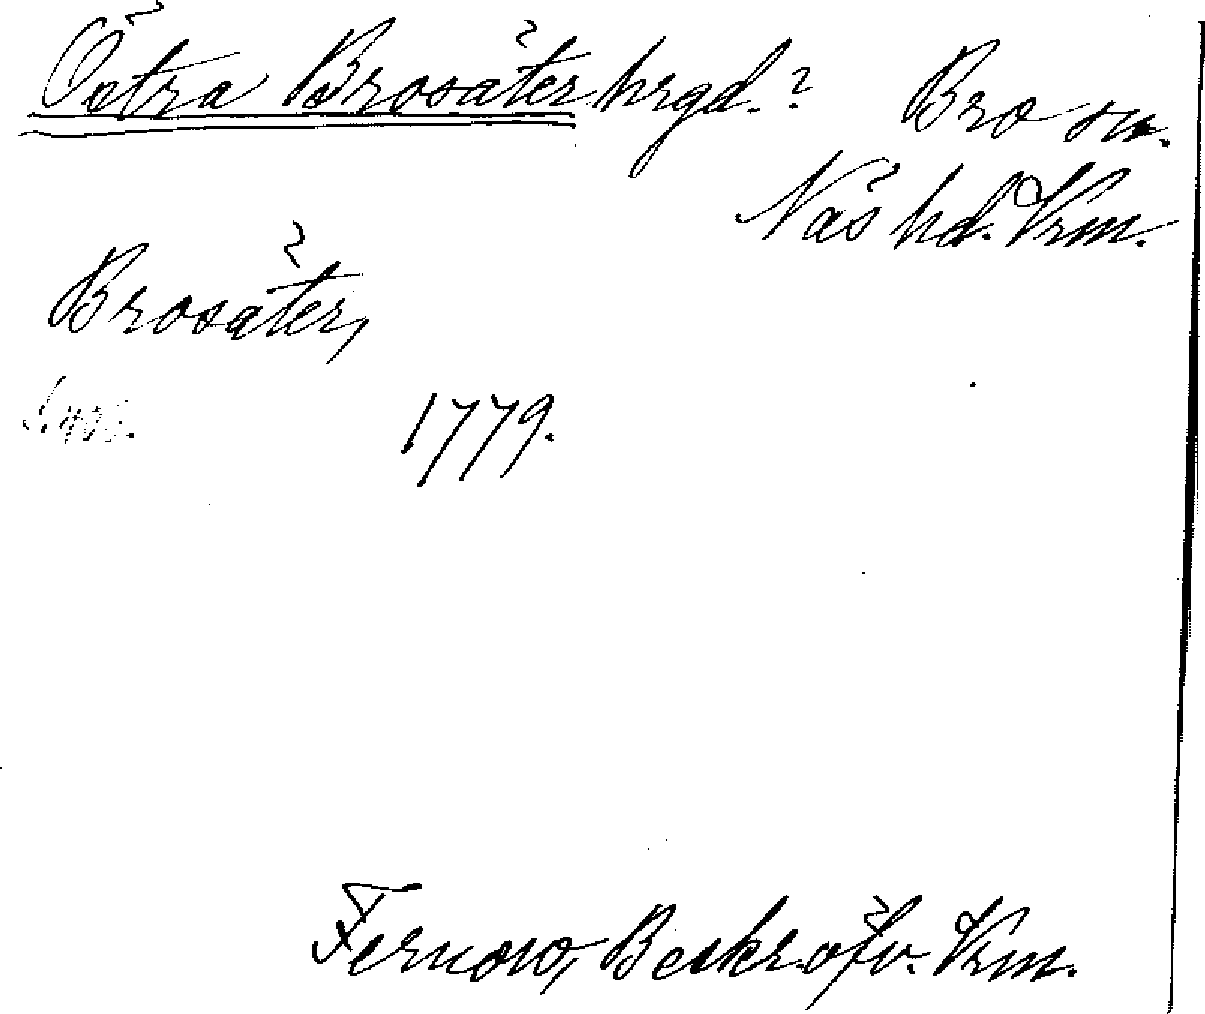 Östra Brosäter hrgd.? Bro sn.
Näs hd. Vrm.
Brosäter,
1779.
Fernow, Beskr. öfv. Vrm.